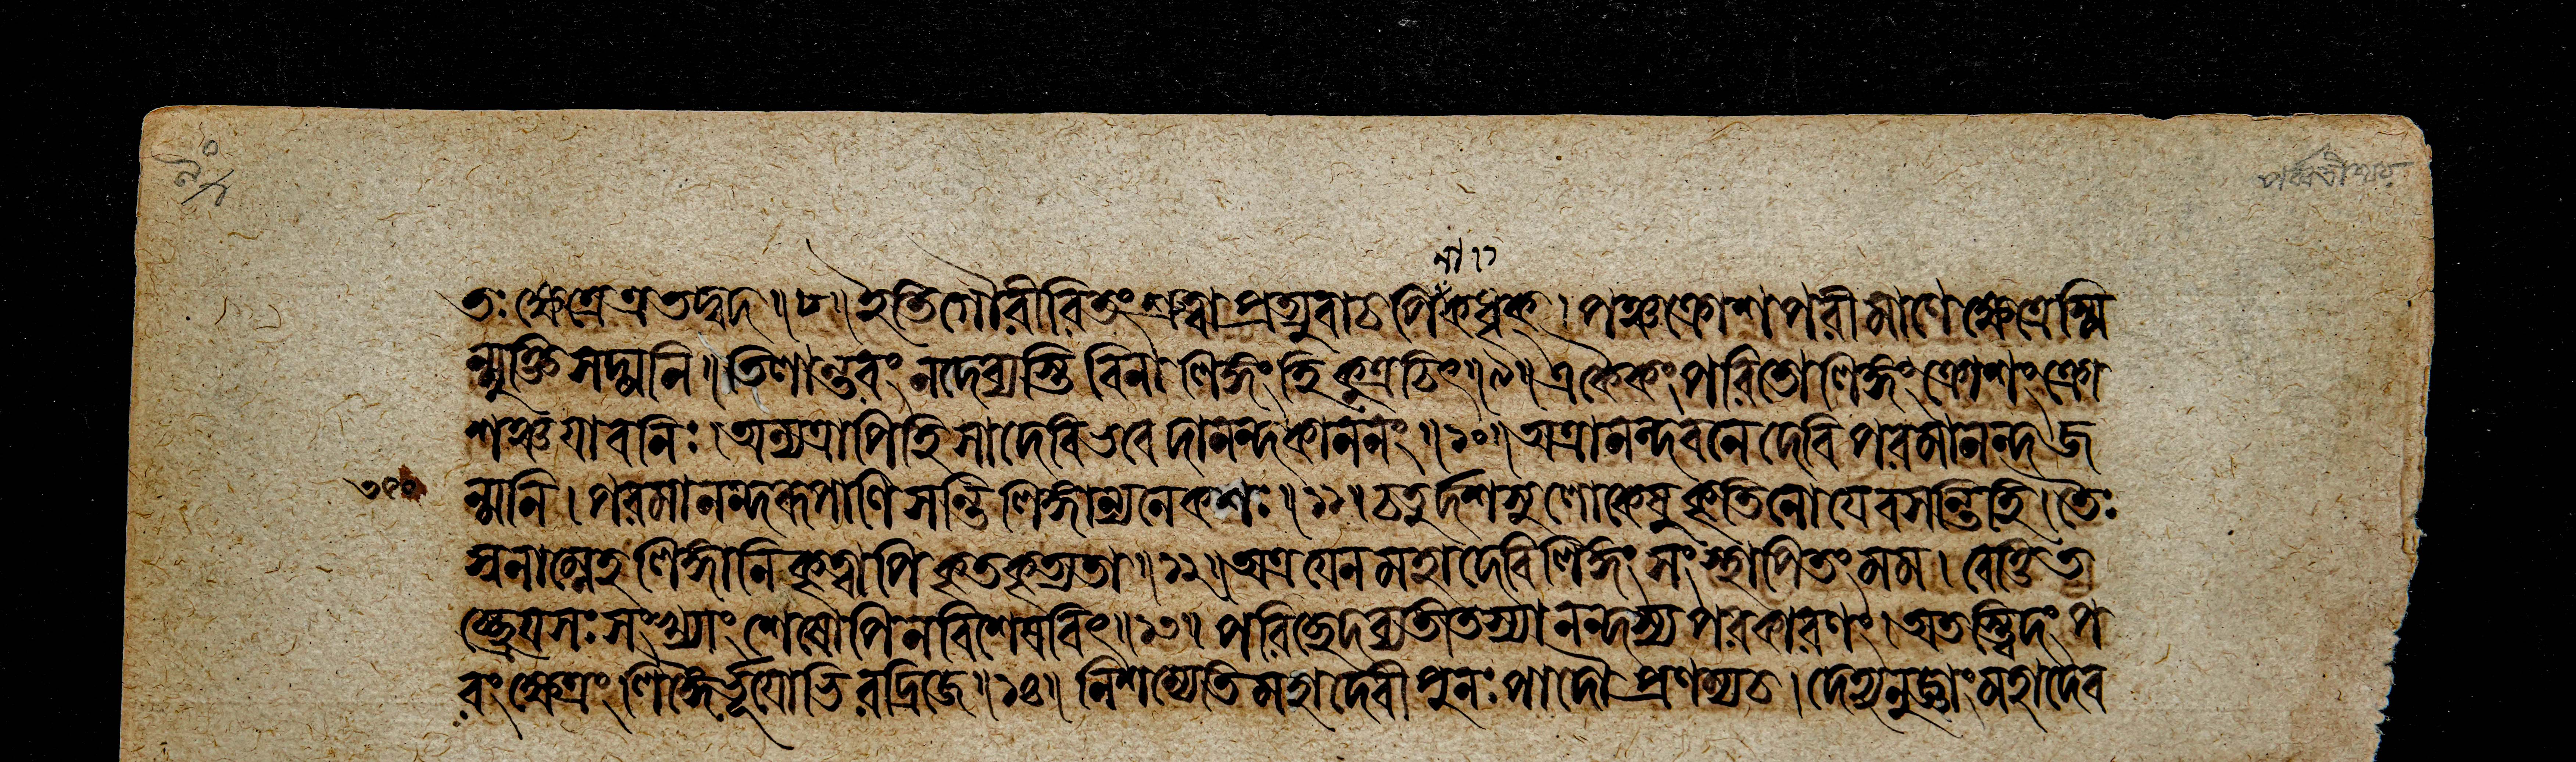 তঃ ক্ষেত্রে এতদ্বদ ॥ ৮ ॥ ইতি গৌরীরিতং শ্রুত্বা প্রত্যুবাচ পিনাকধৃক্ । পঞ্চক্রোশপরীমাণে ক্ষেত্রেস্মি
ন্মুক্তিসদ্মনি ॥ তিলান্তরং নদেব্যস্তি বিনা লিঙ্গং হি কুত্রচিৎ ॥ ৯ ॥ একৈকং পরিতো লিঙ্গং ক্রোশং ক্রো
শঞ্চ যাবনিঃ । অন্যত্রাপি হি সা দেবি ভবেদানন্দকাননং ॥ ১০ ॥ অত্রানন্দবনে দেবি পরমানন্দজ
ন্মনি । পরমানন্দরূপাণি সন্তি লিঙ্গান্যনেকশঃ ॥ ১১ । চতুর্দ্দশসু লোকেষু কৃতিনো যে বসন্তি হি । তৈঃ
স্বনাম্নেহ লিঙ্গানি কৃত্বাপি কৃতকৃত্যতা ॥ ১২ ॥ অত্র যেন মহাদেবি লিঙ্গং সংস্থাপিতং মম । বেত্তি ত
চ্ছ্রেয়সঃ সংখ্যাং শেষোপি ন বিশেষবিৎ ॥ ১৩ ॥ পরিচ্ছেদব্যতীতস্যানন্দস্য পরকারণং । অতস্ত্বিদং প
রং ক্ষেত্রং লিঙ্গৈর্ভূয়োভিরদ্রিজে ॥ ১৪ ॥ নিশম্যেতি মহাদেবী পুনঃ পাদৌ প্রণম্যচ । দেহ্যনুজ্ঞাং মহাদেব